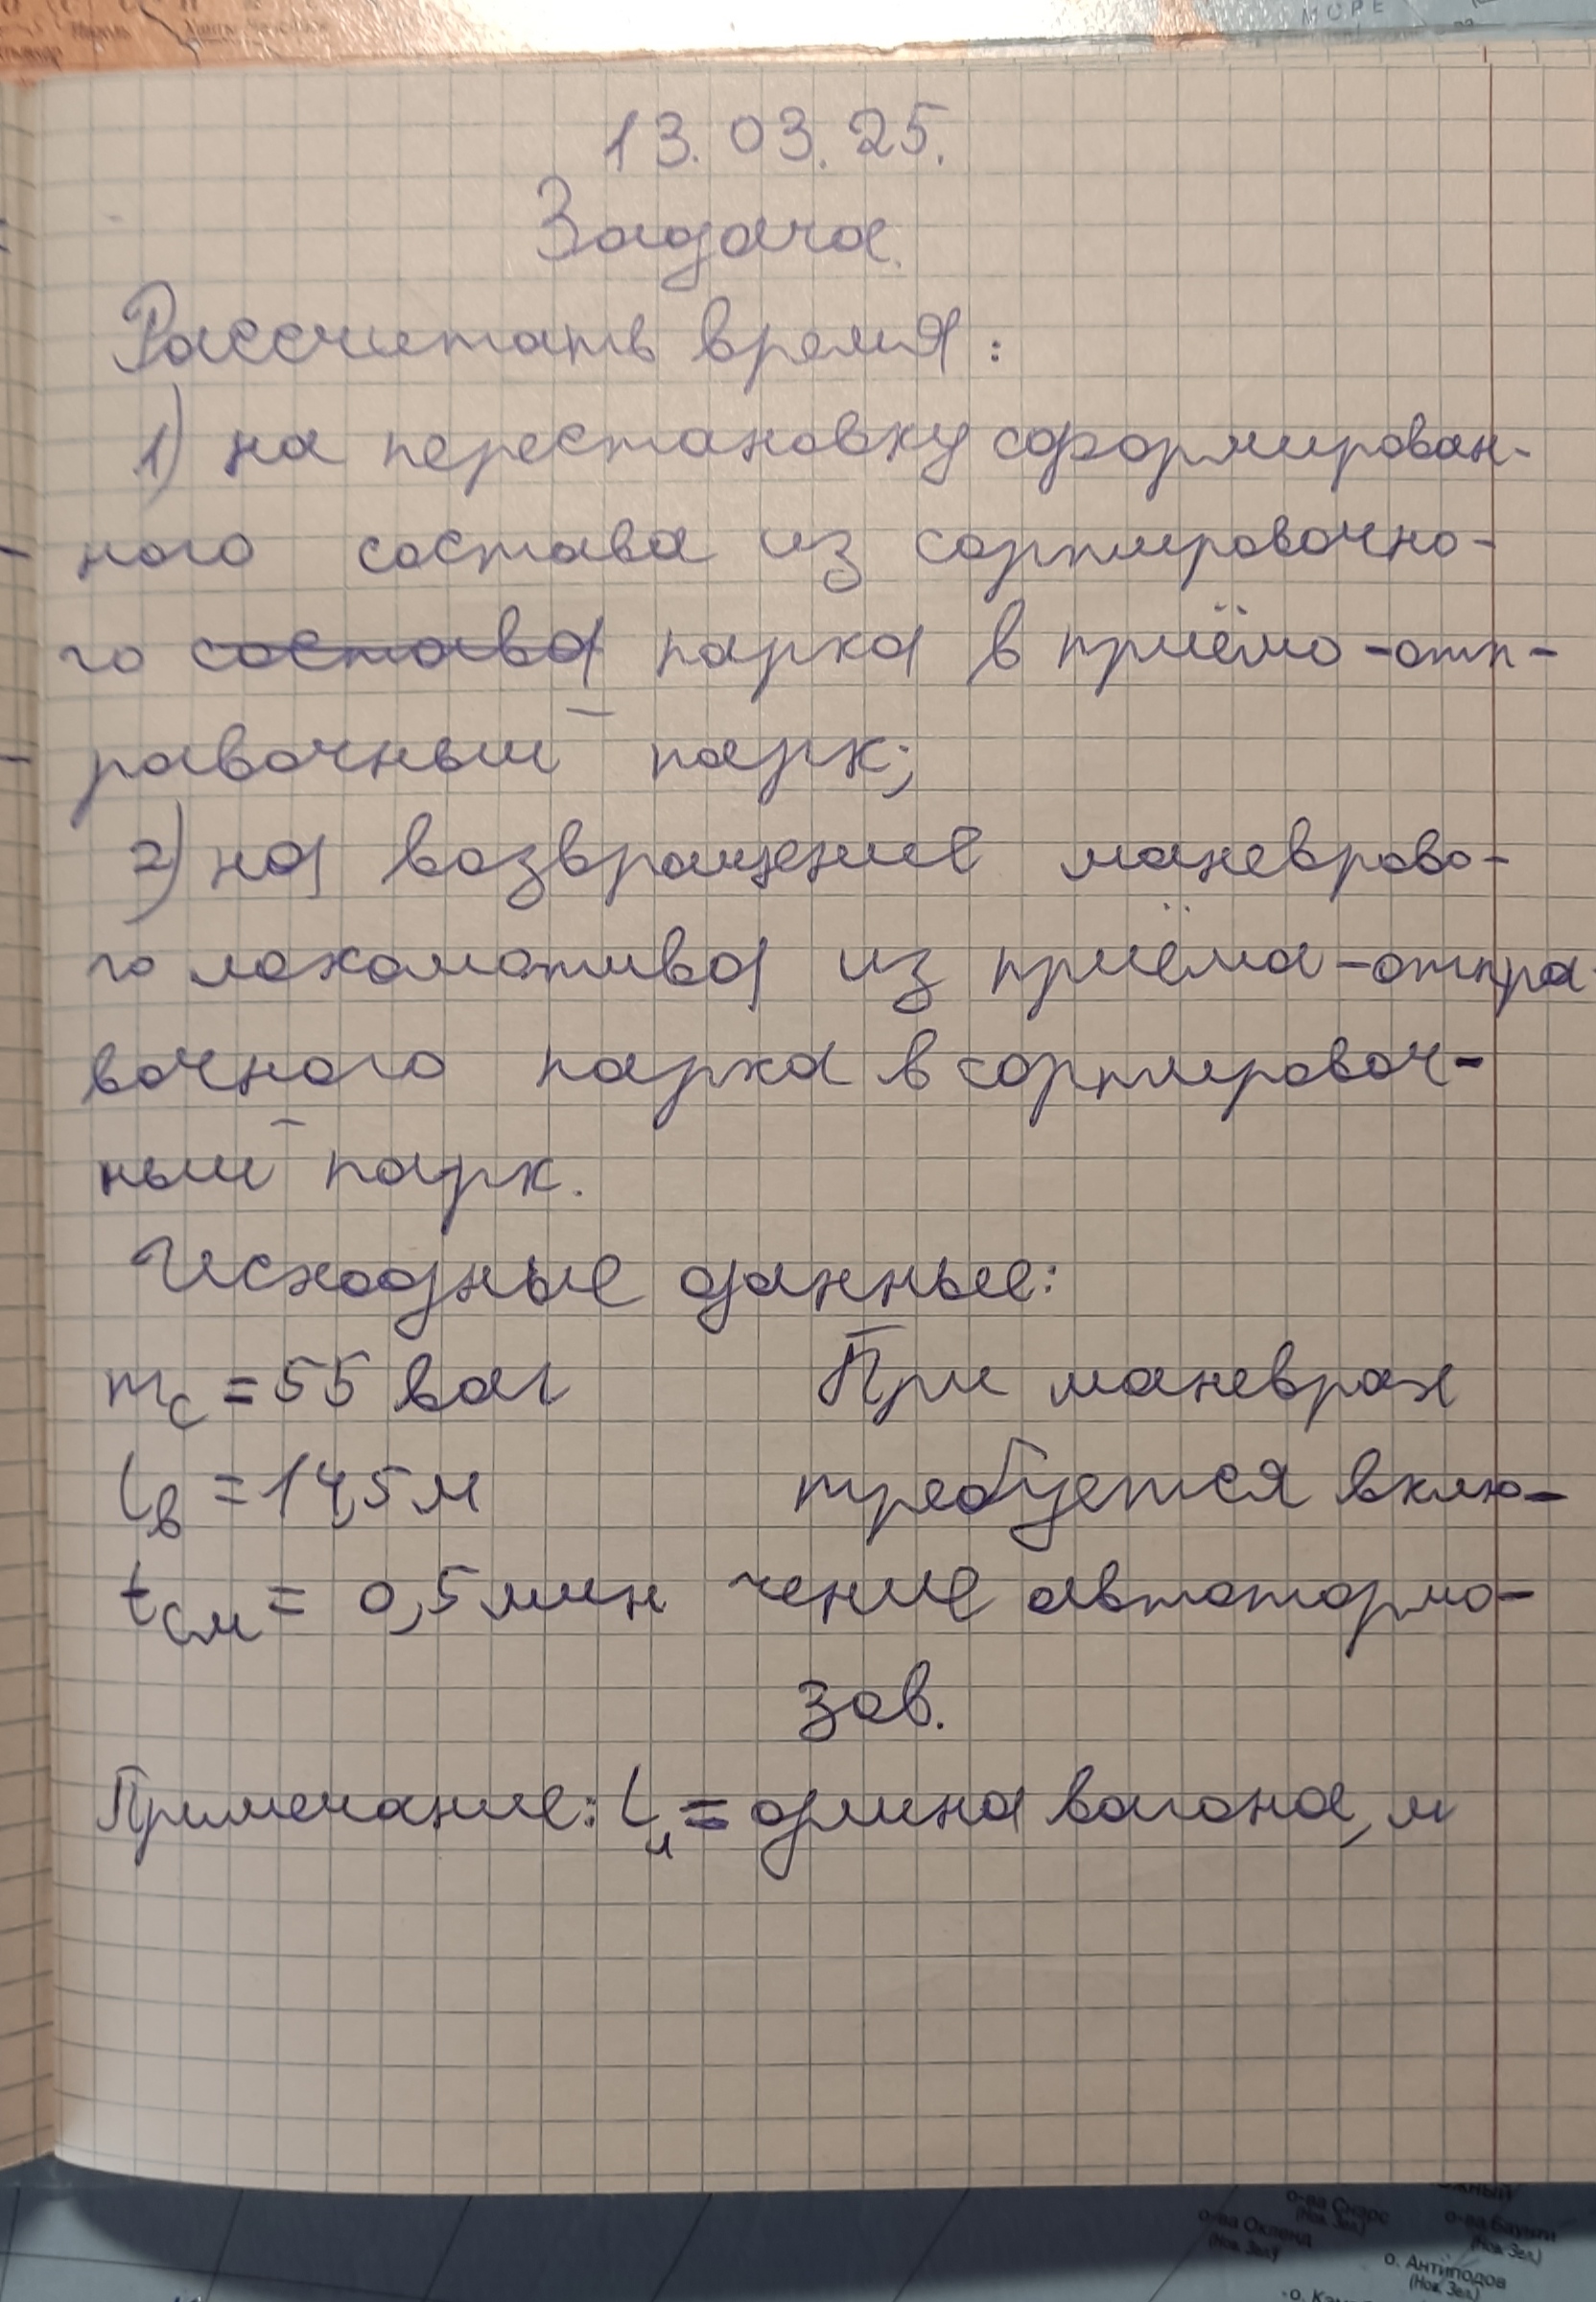 МОРЕ
13.03.25.
Задача.
Рассчитать время:
1) на перестановку сформирован-
ного состава из сортировочно-
го состава парка в приёмо-отп-
равочный парк;
2) на возвращение маневрово-
го локомотива из приёма-отпра
вочного парка в сортировоч-
ный парк.
Исходные данные:
mс = 55 ваг При маневрах
lв = 14,5 м требуется вклю-
tсм = 0,5 мин чение автотормо-
зов.
Примечание: lм = длина вагона, м
о-ва Снэрс
(Нов. Зел.)
о-ва Окленд
(Нов. Зел.)
о-ва Баунти
(Нов. Зел.)
о. Антиподов
(Нов. Зел.)